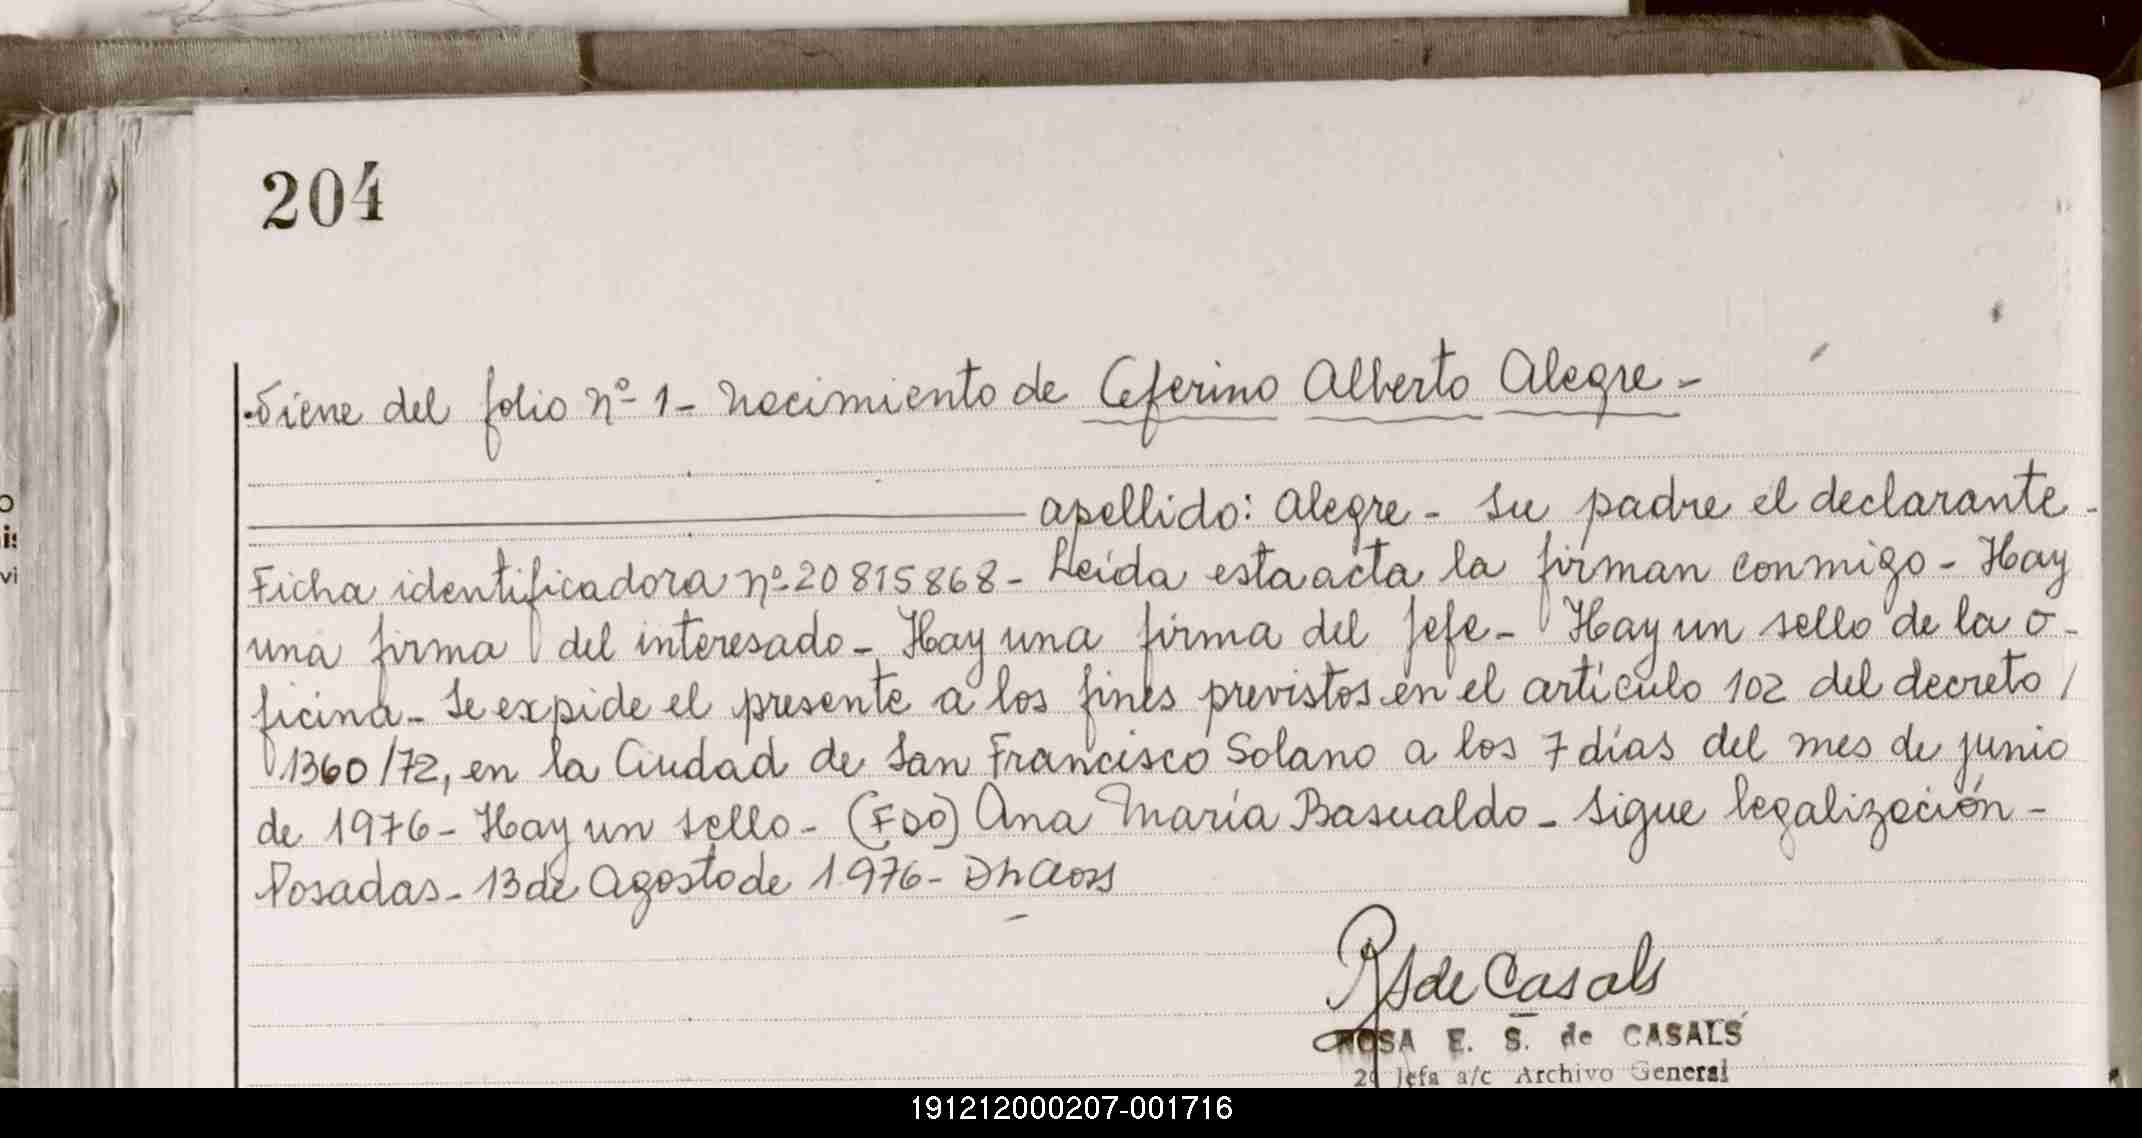 204
Viene del folio nº 1- Nacimiento de Ceferino Alberto Alegre-
apellido: Alegre- Su padre el declarante-
Ficha identificadora nº 20815868- Leída esta acta la firman conmigo- Hay
una firma del interesado- Hay una firma del Jefe- Hay un sello de la o-
ficina- Se expide el presente a los fines previstos en el artículo 102 del decreto /
1360/72, en la Ciudad de San Francisco Solano a los 7 días del mes de junio
de 1976- Hay un sello- (FDO) Ana María Basualdo- Sigue legalización-
Posadas- 13 de Agosto de 1976-
RS de Casals
ROSA E. S. de CASALS
2º Jefa a/c Archivo General
191212000207-001716